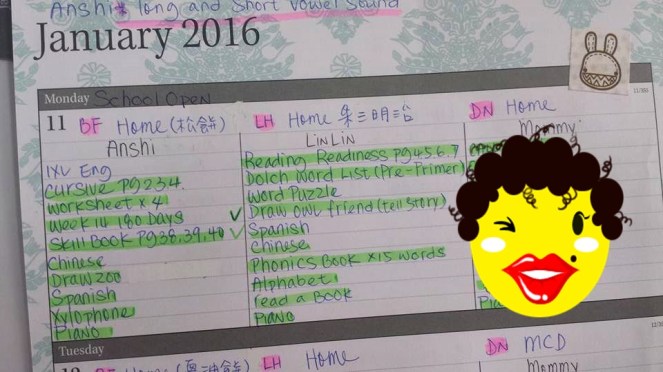 Anshi* long and short vowel sound
January 2016
Monday School Open
11 BF Home (松餅) LH Home 集三明治 DN Home
Anshi LinLin Mommy
IXL Eng
cursive Pg 2.3.4.
worksheet x 4
week 14 180 Days ✓
Skill Book Pg 38.39.40 ✓
Chinese
Draw zoo
Spanish
Xylophone
Piano
Reading Readiness Pg 4.5.6.7
Dolch Word List (Pre-Primer)
Word Puzzle
Draw owl friend (tell story)
Spanish
Chinese
Phonics Book x 15 words
Alphabet
read a Book
Piano
Tuesday
12 BF Home LH Home DN MCD
Mommy